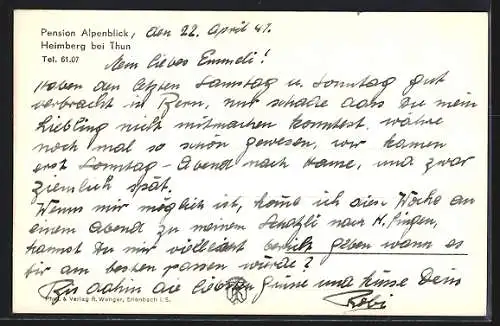 Pension Alpenblick, den 22. April 41.
Heimberg bei Thun
Tel. 61.07
Mein liebes Emmeli!
Haben den letzten Samstag u. Sonntag gut
verbracht in Bern, nur schade dass Du mein
Liebling nicht mitmachen konntest. währe
noch mal so schön gewesen, wir kamen
erst Sonntag-Abend nach Hause, und zwar
ziemlich spät.
Wenn mir möglich ist, komme ich diese Woche an
einem Abend zu meinem Schatzli nach H.fingen,
kannst Du mir vielleicht bericht geben wann es
Dir am besten passen würde?
Bis dahin die liebsten Grüsse und Küsse Dein
Robi
Photo & Verlag R. Wenger, Erlenbach i. S.